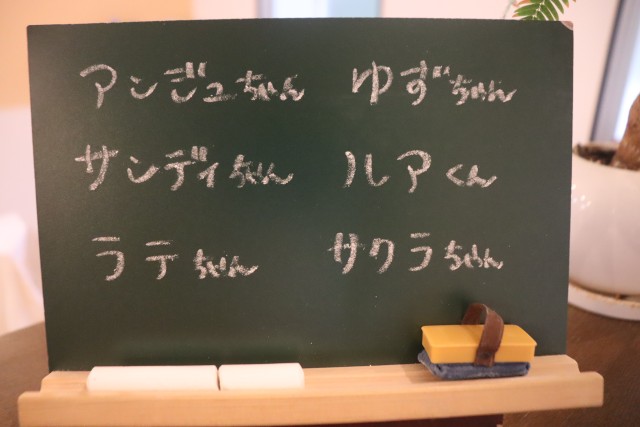 アンジュちゃん ゆずちゃん
サンディちゃん ルアくん
ラテちゃん サクラちゃん